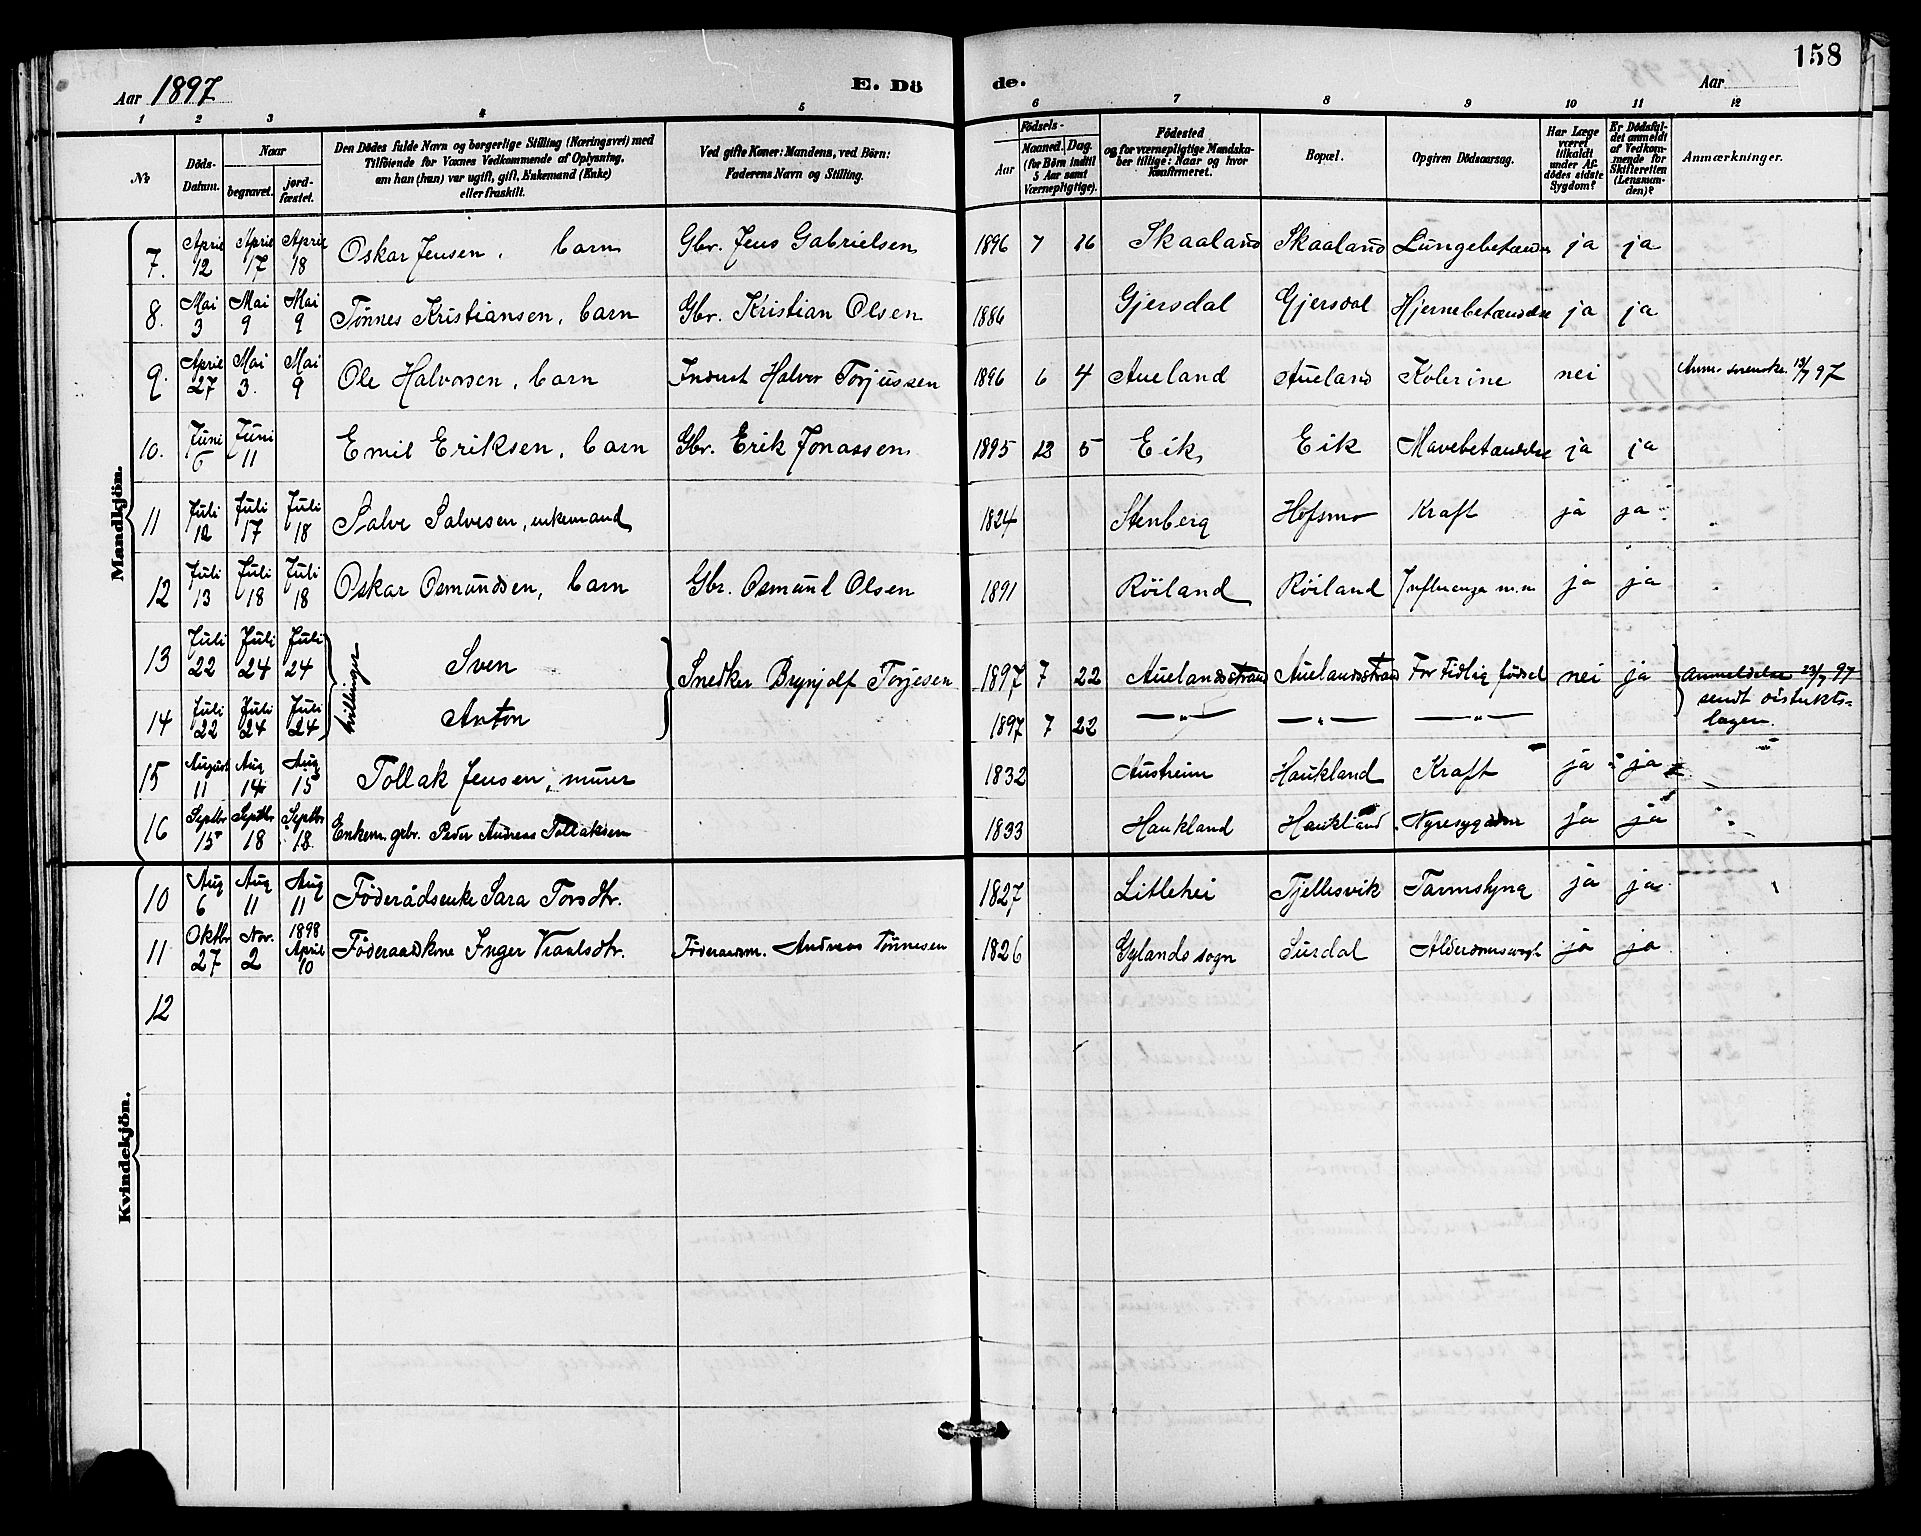 158
Aar 1897
E. Dö
de.
Aar
1 2 3 4 5 6 7 8 9 10 11 12
№
Döds-Datum.
Naar
begravet.
jord-fæstet.
Den Dödes fulde Navn og borgerlige Stilling (Næringsvei) med
Tilföiende for Voxnes Vedkommende af Oplysning,
om han (hun) var ugift, gift, Enkemand (Enke)
eller fraskilt.
Ved gifte Koner: Mandens, ved Börn:
Faderens Navn og Stilling.
Födsels-
Aar
Maaned. Dag.
(for Börn indtil
5 Aar samt
Værnepligtige).
Födested
og for værnepligtige Mandska-
ber tillige: Naar og hvor
Konfirmeret.
Bopæl.
Opgiven Dödsaarsag.
Har Læge
været
tilkaldt
under Af-
dödes sidste
Sygdom?
Er Dödsfal-
det anmeldt
af Vedkom-
mende for
Skifteretten
(Lensman-
den)?
Anmærkninger.
Mandkjön.
7. April 12 April 17 April 18 Oskar Jensen, barn Gbr. Jens Gabrielsen 1896 7 16 Skaaland Skaaland Lungebetænd ja ja
8. Mai 3 Mai 9 Mai 9 Tönnes Kristiansen, barn Gbr. Kristian Olsen 1886 Gjersdal Gjersdal Hjernebetændelse ja ja
9. April 27 Mai 3. Mai 9 Ole Halvorsen, barn Inderst Halvor Torjussen 1896 6 4 Aueland Aueland Kolerine nei 97
10. Juni 6 Juni 11 Emil Eriksen, barn Gbr. Erik Jonassen 1895 12 5 Eik Eik Mavebetændelse ja ja
11 Juli 12 Juli 17 Juli 18 Salve Salvesen, enkemand 1824 Stenberg Hofsmo Kraft ja ja
12 Juli 13 Juli 18 Juli 18 Oskar Osmundsen, barn Gbr. Osmund Olsen 1891 Röiland Röiland Influenza m.m. ja ja
13 Juli 22 Juli 24 Juli 24 tvillinger Sven Snedker Brynjolf Torjesen 1897 7 22 Auelandsstrand Auelandsstrand For tidlig födsel nei ja Anmeldelse 23/7 97
14 Juli 22 Juli 24 Juli 24 Anton 1897 7 22 —„— —„— —„— sendt distrikts-
lægen.
15 August 11 Aug 14 Aug 15 Tollak Jensen, murer 1832 Ausheim Haukland Kraft ja ja
16 Septbr 15 Septbr 18 Septbr 18. Enkem. gbr. Peder Andreas Tollaksen 1833 Haukland Haukland Nyresygdom ja ja
Kvindekjön.
10 Aug 6 Aug 11 Aug 11 Föderådsenke Sara Torsdtr. 1827 Litlehei Tjellesvik Tarmslyng ja ja
11 Oktbr 27 Nov. 2 1898 April 10 Föderaadskone Inger Traalsdtr. Föderaadsm. Andreas Tönnesen 1826 Gylands sogn Surdal Alderdomssvagh ja ja
12